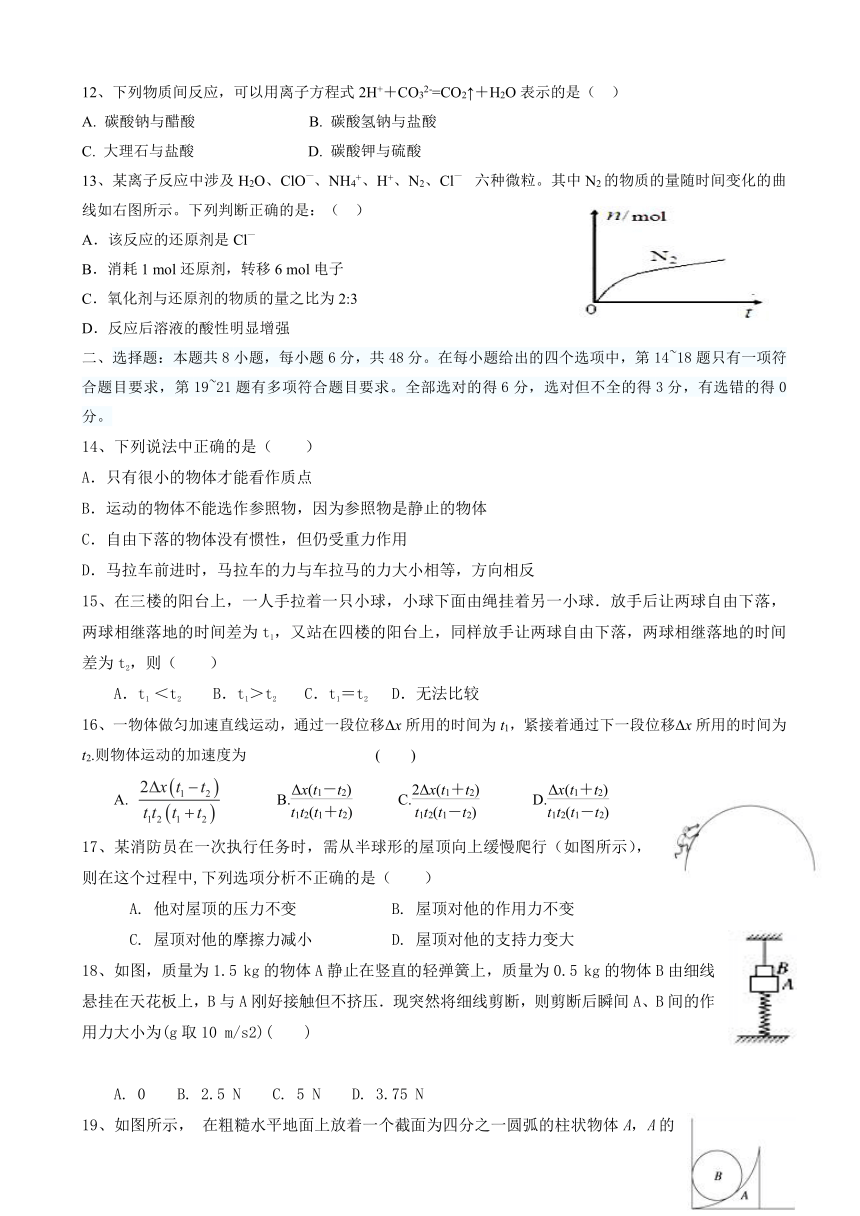 12、下列物质间反应，可以用离子方程式 2H⁺＋CO₃²⁻=CO₂↑＋H₂O 表示的是（ ）
A. 碳酸钠与醋酸 B. 碳酸氢钠与盐酸
C. 大理石与盐酸 D. 碳酸钾与硫酸
13、某离子反应中涉及 H₂O、ClO⁻、NH₄⁺、H⁺、N₂、Cl⁻ 六种微粒。其中 N₂ 的物质的量随时间变化的曲
线如右图所示。下列判断正确的是：（ ）
n/mol
N₂
O
t
A．该反应的还原剂是 Cl⁻
B．消耗 1 mol 还原剂，转移 6 mol 电子
C．氧化剂与还原剂的物质的量之比为 2:3
D．反应后溶液的酸性明显增强
二、选择题：本题共 8 小题，每小题 6 分，共 48 分。在每小题给出的四个选项中，第 14~18 题只有一项符
合题目要求，第 19~21 题有多项符合题目要求。全部选对的得 6 分，选对但不全的得 3 分，有选错的得 0
分。
14、下列说法中正确的是（ ）
A．只有很小的物体才能看作质点
B．运动的物体不能选作参照物，因为参照物是静止的物体
C．自由下落的物体没有惯性，但仍受重力作用
D．马拉车前进时，马拉车的力与车拉马的力大小相等，方向相反
15、在三楼的阳台上，一人手拉着一只小球，小球下面由绳挂着另一小球．放手后让两球自由下落，
两球相继落地的时间差为 t₁，又站在四楼的阳台上，同样放手让两球自由下落，两球相继落地的时间
差为 t₂，则（ ）
A．t₁＜t₂ B．t₁＞t₂ C．t₁＝t₂ D．无法比较
16、一物体做匀加速直线运动，通过一段位移Δx 所用的时间为 t₁，紧接着通过下一段位移Δx 所用的时间为
t₂.则物体运动的加速度为 ( )
A. 2Δx(t₁−t₂)/t₁t₂(t₁+t₂) B.Δx(t₁－t₂)/t₁t₂(t₁＋t₂) C.2Δx(t₁＋t₂)/t₁t₂(t₁－t₂) D.Δx(t₁＋t₂)/t₁t₂(t₁－t₂)
17、某消防员在一次执行任务时，需从半球形的屋顶向上缓慢爬行（如图所示），
则在这个过程中,下列选项分析不正确的是（ ）
A. 他对屋顶的压力不变 B. 屋顶对他的作用力不变
C. 屋顶对他的摩擦力减小 D. 屋顶对他的支持力变大
18、如图，质量为 1.5 kg 的物体 A 静止在竖直的轻弹簧上，质量为 0.5 kg 的物体 B 由细线
悬挂在天花板上，B 与 A 刚好接触但不挤压．现突然将细线剪断，则剪断后瞬间 A、B 间的作
用力大小为(g 取 10 m/s2)( )
B
A
A. 0 B. 2.5 N C. 5 N D. 3.75 N
19、如图所示， 在粗糙水平地面上放着一个截面为四分之一圆弧的柱状物体 A，A 的
B
A